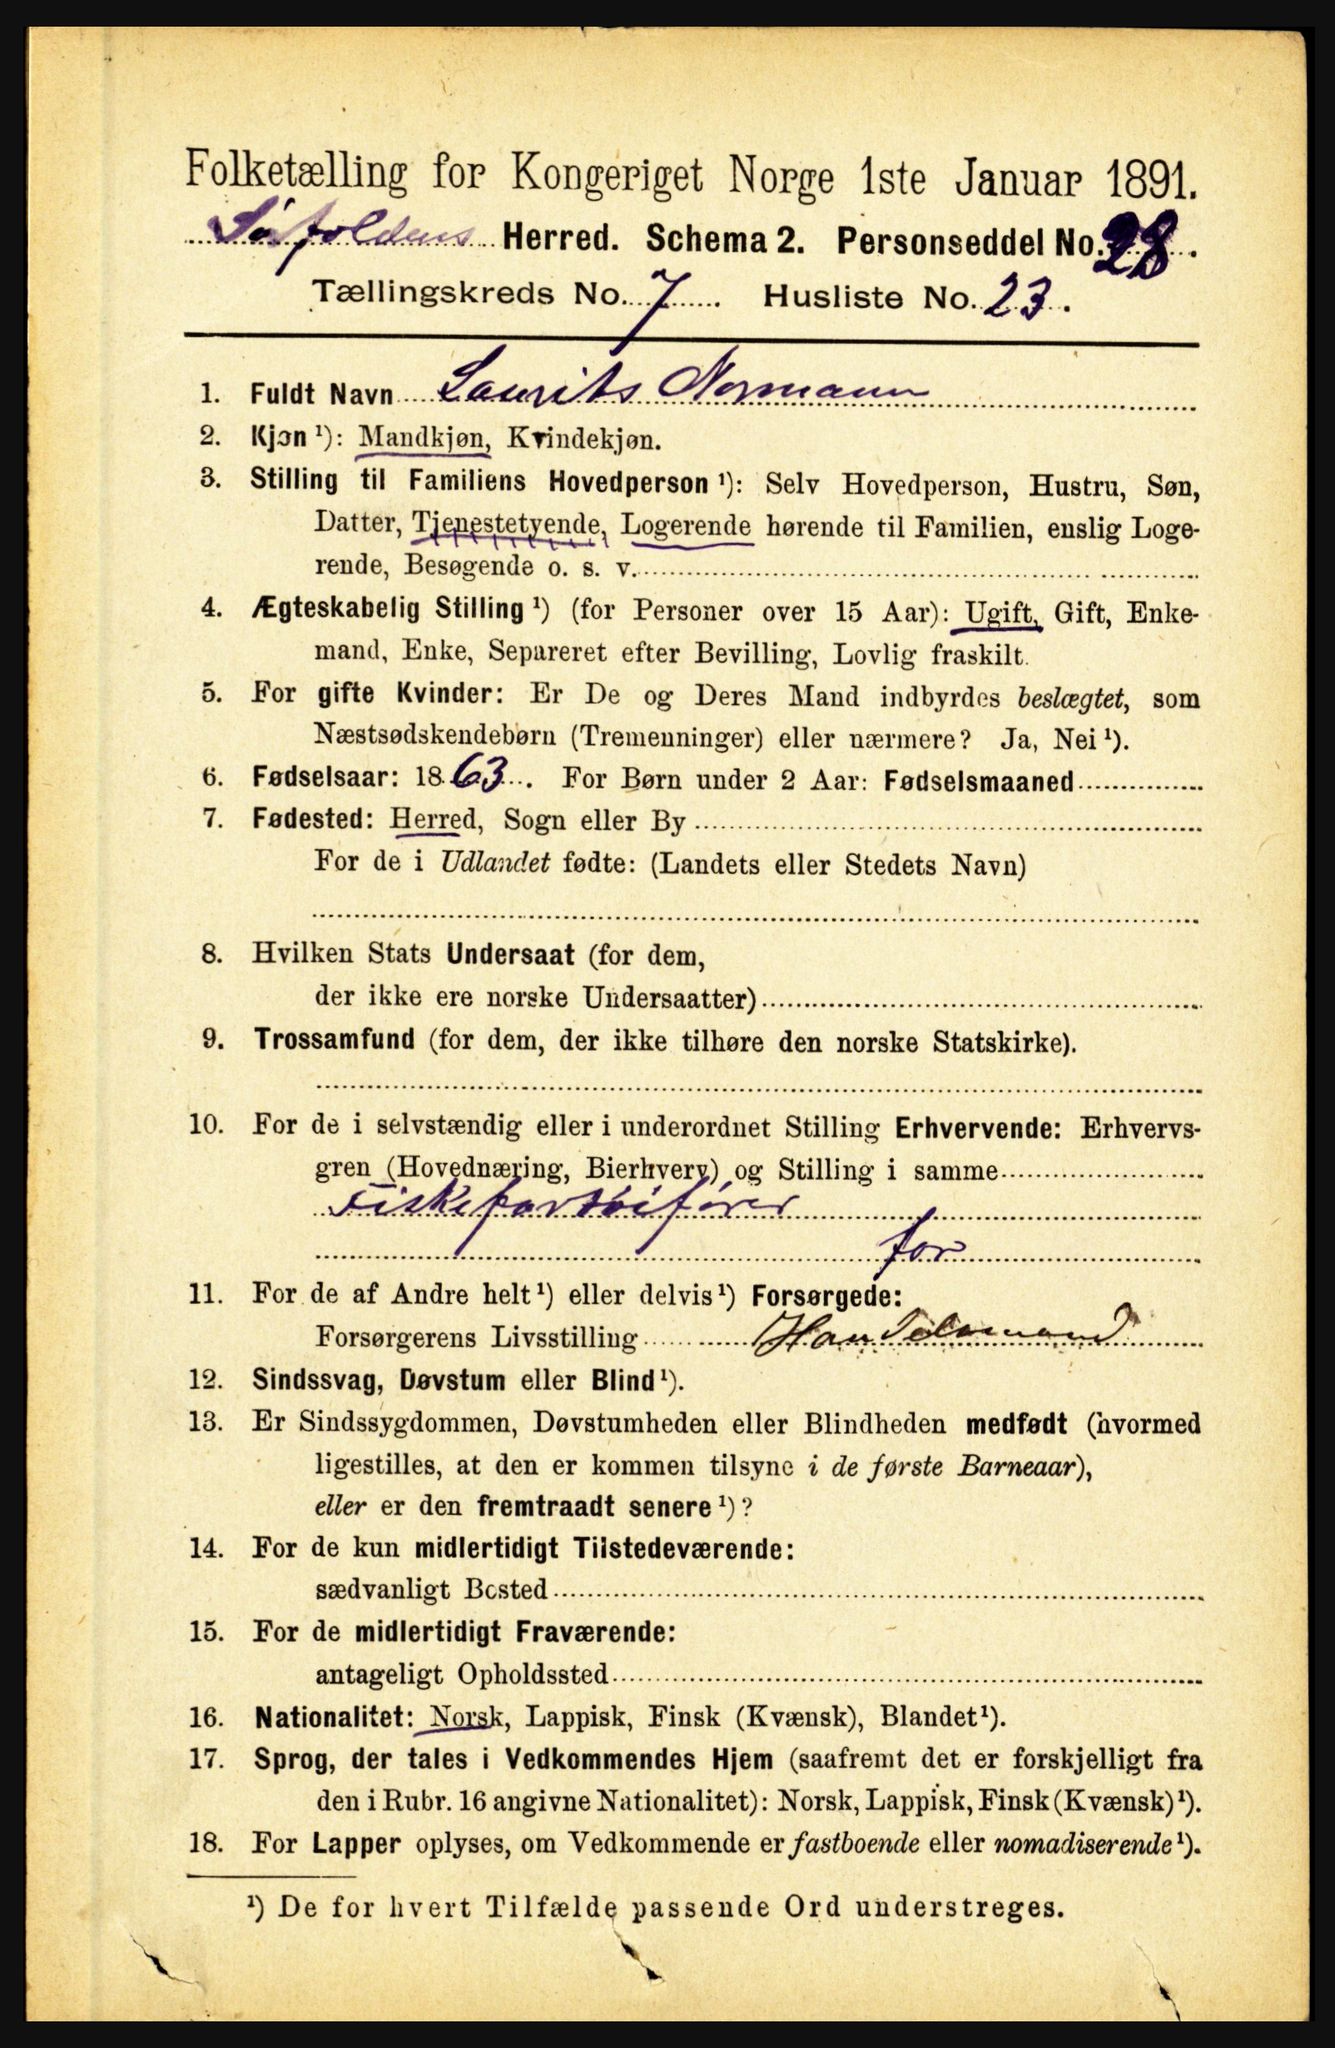 Folketælling for Kongeriget Norge 1ste Januar 1891.
Sørfoldens Herred. Schema 2. Personseddel No. 28.
Tællingskreds No. 7. Husliste No. 23.
1. Fuldt Navn Laurits Normann
2. Kjøn ¹): Mandkjøn, Kvindekjøn.
3. Stilling til Familiens Hovedperson ¹): Selv Hovedperson, Hustru, Søn,
Datter, Tjenestetyende, Logerende hørende til Familien, enslig Loge-
rende, Besøgende o. s. v.
4. Ægteskabelig Stilling ¹) (for Personer over 15 Aar): Ugift, Gift, Enke-
mand, Enke, Separeret efter Bevilling, Lovlig fraskilt.
5. For gifte Kvinder: Er De og Deres Mand indbyrdes beslægtet, som
Næstsødskendebørn (Tremenninger) eller nærmere? Ja, Nei ¹).
6. Fødselsaar: 1863. For Børn under 2 Aar: Fødselsmaaned
7. Fødested: Herred, Sogn eller By
For de i Udlandet fødte: (Landets eller Stedets Navn)
8. Hvilken Stats Undersaat (for dem,
der ikke ere norske Undersaatter)
9. Trossamfund (for dem, der ikke tilhøre den norske Statskirke).
10. For de i selvstændig eller i underordnet Stilling Erhvervende: Erhvervs-
gren (Hovednæring, Bierhverv) og Stilling i samme
Fiskefartøifører
for
11. For de af Andre helt ¹) eller delvis ¹) Forsørgede:
Forsørgerens Livsstilling Handelsmand
12. Sindssvag, Døvstum eller Blind ¹).
13. Er Sindssygdommen, Døvstumheden eller Blindheden medfødt (hvormed
ligestilles, at den er kommen tilsyne i de første Barneaar),
eller er den fremtraadt senere ¹)?
14. For de kun midlertidigt Tilstedeværende:
sædvanligt Bosted
15. For de midlertidigt Fraværende:
antageligt Opholdssted
16. Nationalitet: Norsk, Lappisk, Finsk (Kvænsk), Blandet ¹).
17. Sprog, der tales i Vedkommendes Hjem (saafremt det er forskjelligt fra
den i Rubr. 16 angivne Nationalitet): Norsk, Lappisk, Finsk (Kvænsk) ¹).
18. For Lapper oplyses, om Vedkommende er fastboende eller nomadiserende ¹).
¹) De for hvert Tilfælde passende Ord understreges.